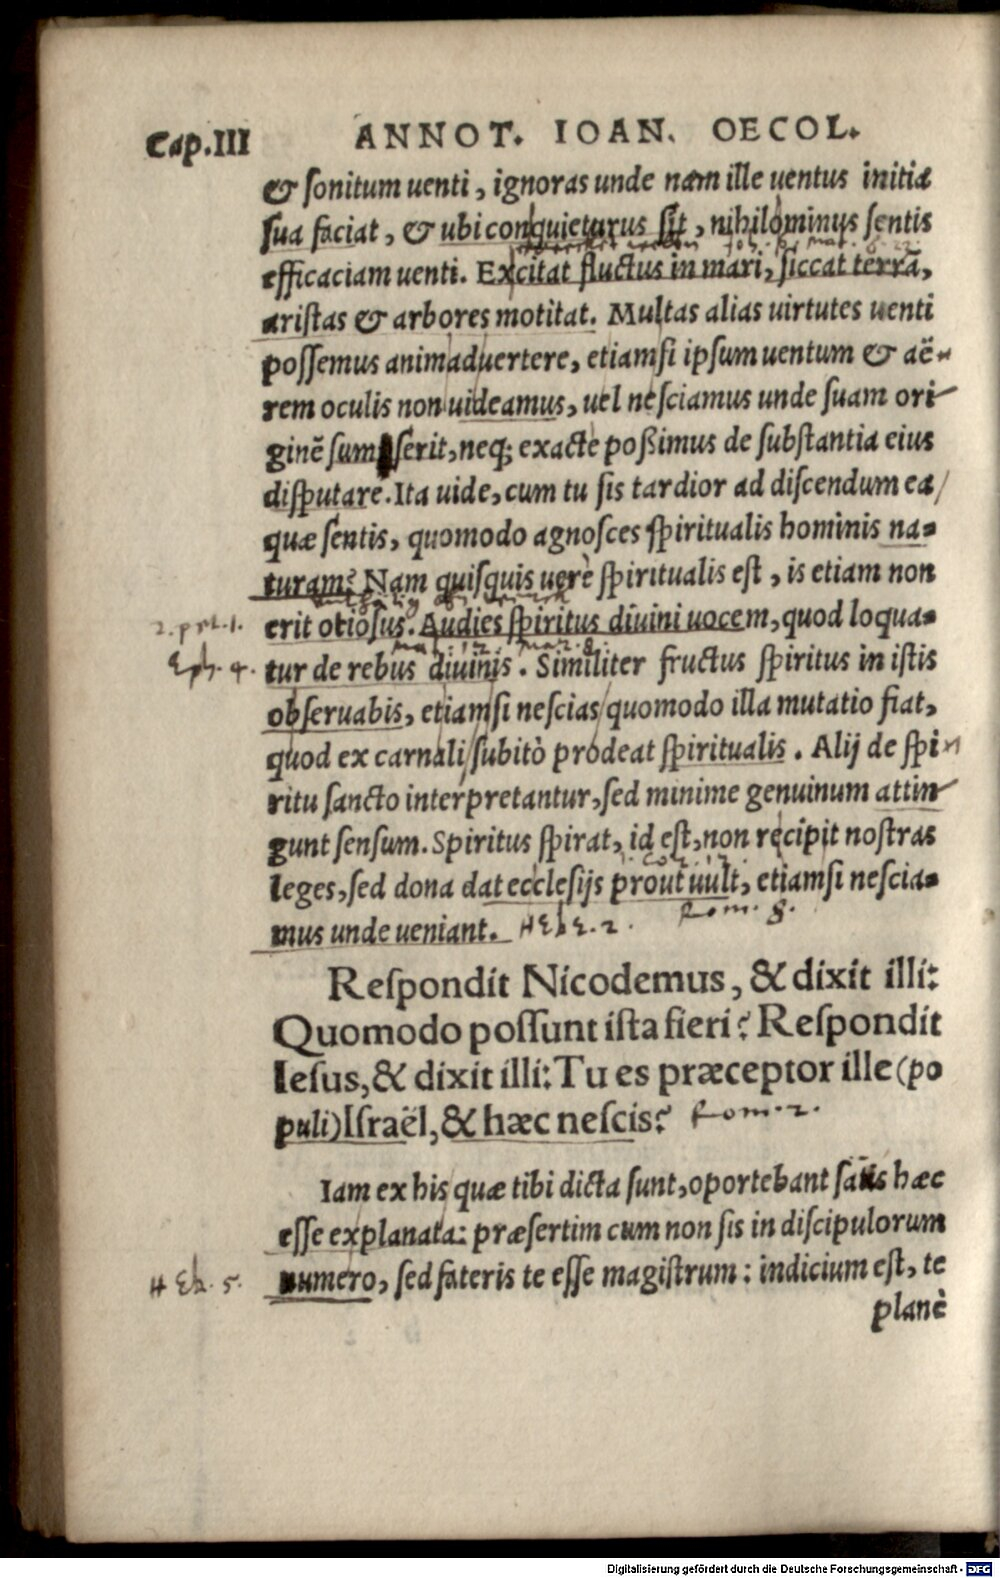 Cap.III ANNOT. IOAN. OECOL.
& ſonitum uenti, ignoras unde nam ille uentus initiæ
ſua faciat, & ubi conquieturus ſit, nihilominus ſentis
efficaciam uenti. Excitat fluctus in mari, ſiccat terrã,
ariſtas & arbores motitat. Multas alias uirtutes uenti
poſſemus animaduertere, etiamſi ipſum uentum & aë-
rem oculis non uideamus, uel neſciamus unde ſuam ori-
ginẽ ſumpſerit, neq; exacte poßimus de ſubſtantia eius
diſputare. Ita uide, cum tu ſis tardior ad diſcendum ea/
quæ ſentis, quomodo agnoſces ſpiritualis hominis na-
turam? Nam quiſquis uerè ſpiritualis eſt, is etiam non
2. pet. 1. erit otioſus. Audies ſpiritus diuini uocem, quod loqua-
mat. 12. mar. 8.
Eph. 4. tur de rebus diuinis. Similiter fructus ſpiritus in iſtis
obſeruabis, etiamſi neſcias quomodo illa mutatio fiat,
quod ex carnali ſubitò prodeat ſpiritualis. Alij de ſpi-
ritu ſancto interpretantur, ſed minime genuinum attin-
gunt ſenſum. Spiritus ſpirat, id eſt, non recipit noſtras
1. Cor. 12.
leges, ſed dona dat eccleſijs prout uult, etiamſi neſcia-
mus unde ueniant. HEbE. 2. Rom. 8.
Reſpondit Nicodemus, & dixit illi:
Quomodo poſſunt iſta fieri? Reſpondit
Ieſus, & dixit illi: Tu es præceptor ille (po
puli) Iſraël, & hæc neſcis? Rom. 2.
Iam ex his quæ tibi dicta ſunt, oportebant ſatis hæc
eſſe explanata: præſertim cum non ſis in diſcipulorum
HEb. 5. numero, ſed fateris te eſſe magiſtrum: indicium eſt, te
planè
Digitalisierung gefördert durch die Deutsche Forschungsgemeinschaft - DFG